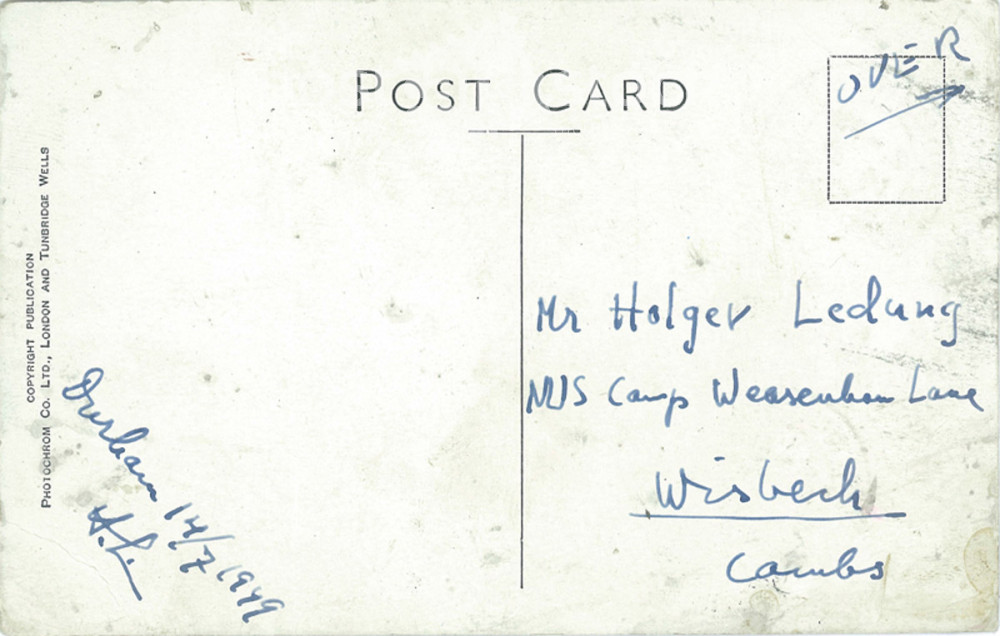 POST CARD
OVER
COPYRIGHT PUBLICATION
PHOTOCHROM CO. LTD., LONDON AND TUNBRIDGE WELLS
Mr Holger Ledung
NUS Camp Weasenham Lane
Wisbech
Cambs
Durham 14/7 1949
H.L.